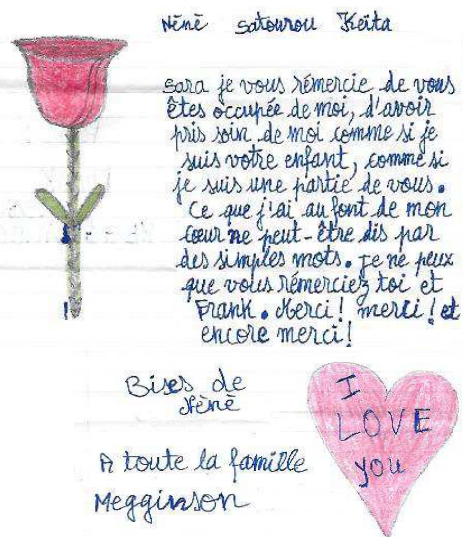 Nènè Satourou Keita
Sara je vous rémercie de vous
êtes occupée de moi, d'avoir
pris soin de moi comme si je
suis votre enfant, comme si
je suis une partie de vous.
Ce que j'ai au font de mon
cœur ne peut-être dis par
des simples mots. Je ne peux
que vous rémerciez toi et
Frank. Merci! merci! et
encore merci!
Bises de
Nènè
A toute la famille
Megginson
I
LOVE
you